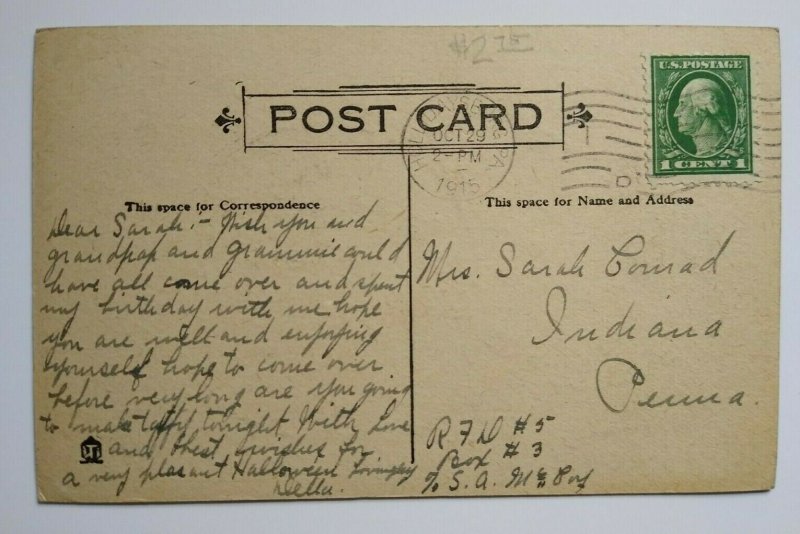 $2 75
POST CARD
OCT 29
2-PM
1915
U.S. POSTAGE
1 CENT 1
This space for Correspondence
This space for Name and Address
Dear Sarah:- Wish you and
grandpap and Grammie could
have all come over and spent
my birthday with me hope
you are well and enjoying
yourself hope to come over
before very long are you going
to make taffy tonight With Love
and best wishes for
a very pleasant Halloween Lovingly
Della.
Mrs. Sarah Conrad
Indiana
Penna.
R F D #5
Box #3
% S. A. McCoy